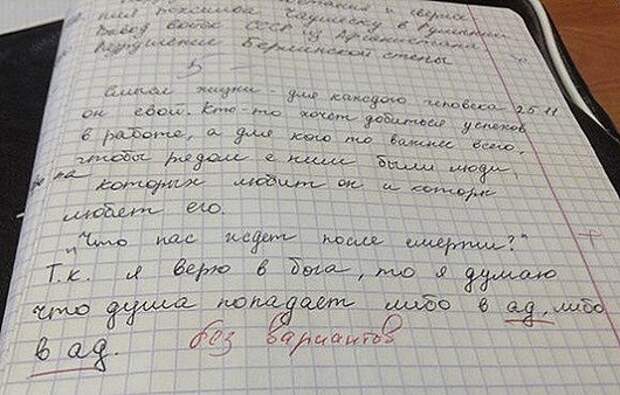 восстания и сверже
ния режима Чаушеску в Румынии
Вывод войск СССР из Афганистана
Разрушение Берлинской стены
5 -
Смысл жизни - для каждого человека 25.11
он свой. Кто-то хочет добиться успехов
в работе, а для кого то важнее всего,
чтобы рядом с ним были люди,
которых любит он и которы
любет его.
"Что нас ждет после смерти?"
Т.к. я верю в бога, то я думаю
что душа попадает либо в ад, либо
в ад. без вариантов